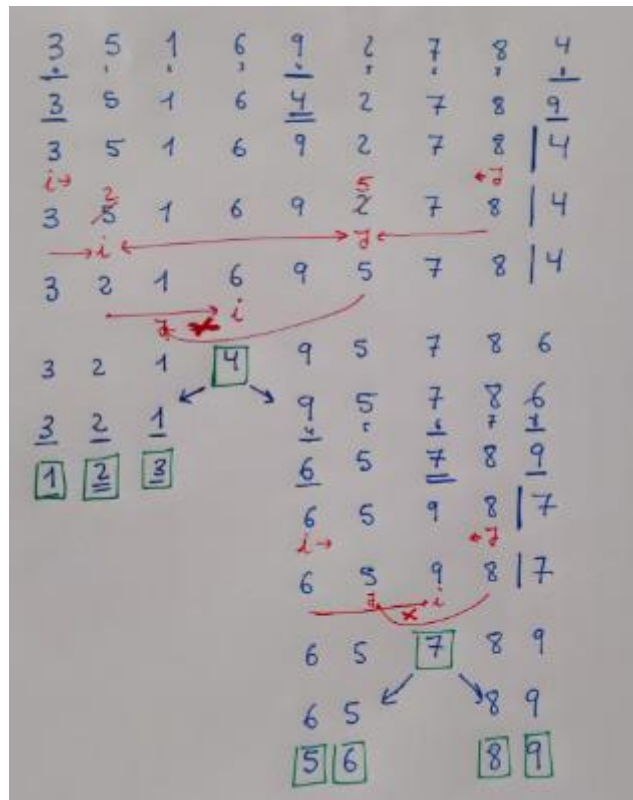 3 5 1 6 9 2 7 8 4
3 5 1 6 4 2 7 8 9
3 5 1 6 9 2 7 8 | 4
i→ 2 5 ←J
3 5 1 6 9 2 7 8 | 4
i J
3 2 1 6 9 5 7 8 | 4
J x i
3 2 1 4 9 5 7 8 6
3 2 1 9 5 7 8 6
1 2 3 6 5 7 8 9
6 5 9 8 | 7
i→ ←J
6 5 9 8 | 7
J x i
6 5 7 8 9
6 5 8 9
5 6 8 9